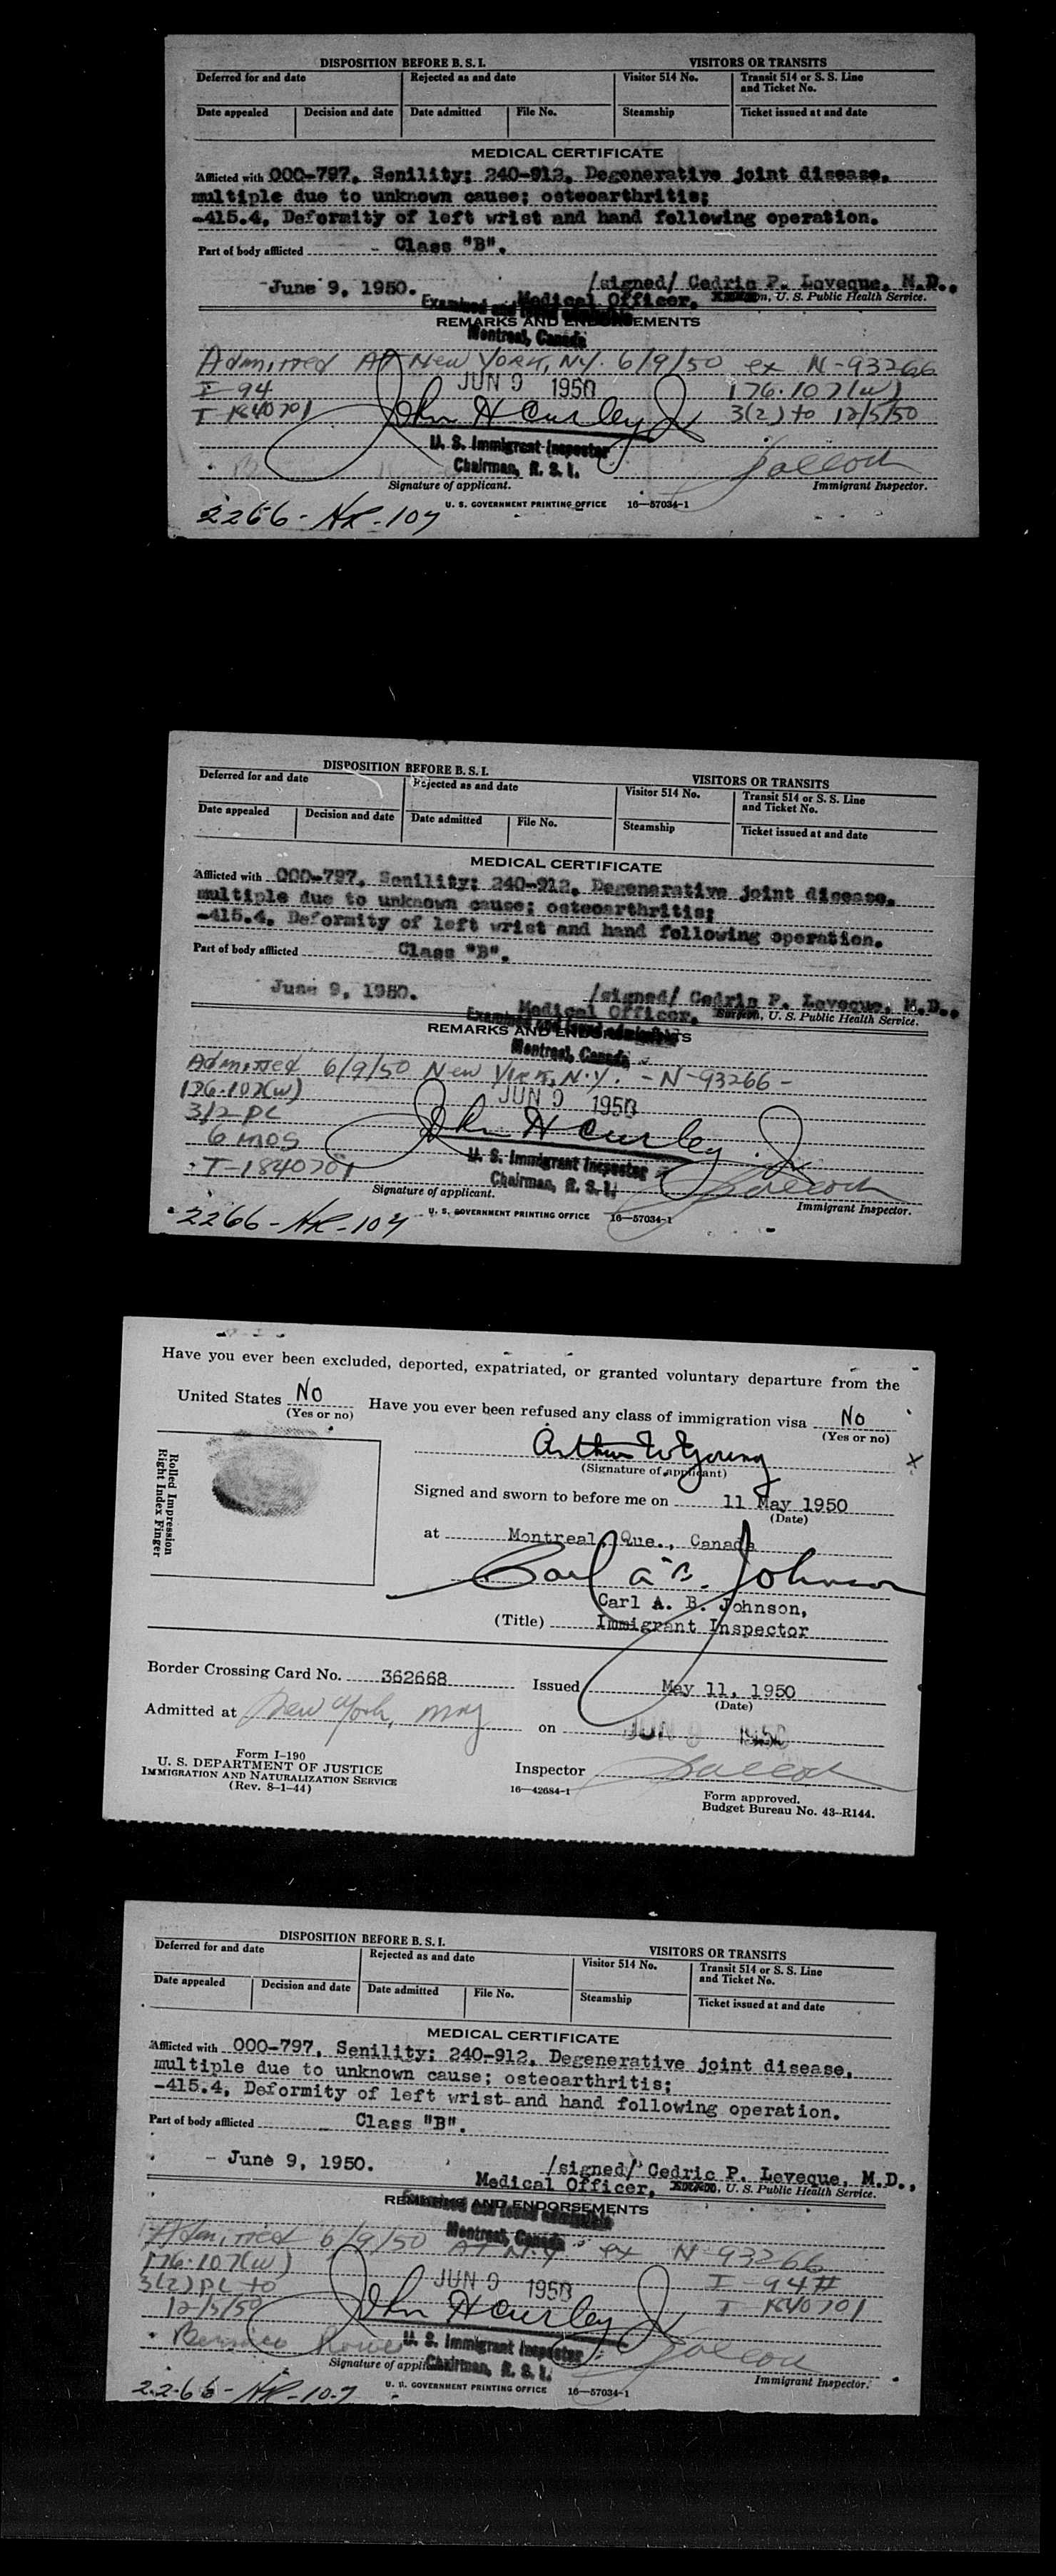 DISPOSITION BEFORE B. S. I.
VISITORS OR TRANSITS
Deferred for and date
Rejected as and date
Visitor 514 No.
Transit 514 or S. S. Line
and Ticket No.
Date appealed
Decision and date
Date admitted
File No.
Steamship
Ticket issued at and date
MEDICAL CERTIFICATE
Afflicted with 000-797, Senility; 240-912, Degenerative joint disease,
multiple due to unknown cause; osteoarthritis;
-415.4, Deformity of left wrist and hand following operation.
Part of body afflicted - Class "B".
June 9, 1950. /signed/ Cedric P. Leveque, M.D.,
Medical Officer, U. S. Public Health Service.
Examined and found admissible
REMARKS AND ENDORSEMENTS
Montreal, Canada
Admitted AT New YORK, N.Y. 6/9/50 ex N-93266
I-94 JUN 9 1950 176.107(w)
T 1840701 John H Curley Jr 3(2) to 12/5/50
U. S. Immigrant Inspector
Chairman, B. S. I.
Signature of applicant.
Immigrant Inspector.
U. S. GOVERNMENT PRINTING OFFICE 16—57034-1
2266-HR-107
DISPOSITION BEFORE B. S. I.
VISITORS OR TRANSITS
Deferred for and date
Rejected as and date
Visitor 514 No.
Transit 514 or S. S. Line
and Ticket No.
Date appealed
Decision and date
Date admitted
File No.
Steamship
Ticket issued at and date
MEDICAL CERTIFICATE
Afflicted with 000-797, Senility; 240-912, Degenerative joint disease,
multiple due to unknown cause; osteoarthritis;
-415.4, Deformity of left wrist and hand following operation.
Part of body afflicted Class "B".
June 9, 1950. /signed/ Cedric P. Leveque, M.D.,
Medical Officer, Surgeon, U. S. Public Health Service.
Examined and found admissible
REMARKS AND ENDORSEMENTS
Montreal, Canada
Admitted 6/9/50 New York, N.Y. - N-93266 -
176.107(w) JUN 9 1950
3/2 PL John H Curley Jr
6 mos
T-1840701 U. S. Immigrant Inspector
Chairman, B. S. I.
Signature of applicant.
Immigrant Inspector.
2266-HR-107 U. S. GOVERNMENT PRINTING OFFICE 16—57034-1
Have you ever been excluded, deported, expatriated, or granted voluntary departure from the
United States No Have you ever been refused any class of immigration visa No
(Yes or no)
(Yes or no)
Rolled Impression
Right Index Finger
Arthur W Young
(Signature of applicant)
Signed and sworn to before me on 11 May 1950
(Date)
at Montreal, Que., Canada
Carl A. B. Johnson
Carl A. B. Johnson,
(Title) Immigrant Inspector
Border Crossing Card No. 362668 Issued May 11, 1950
(Date)
Admitted at New York, on JUN 9 1950
Form I-190
U. S. DEPARTMENT OF JUSTICE
IMMIGRATION AND NATURALIZATION SERVICE
(Rev. 8-1-44)
Inspector
16—42684-1
Form approved.
Budget Bureau No. 43-R144.
DISPOSITION BEFORE B. S. I.
VISITORS OR TRANSITS
Deferred for and date
Rejected as and date
Visitor 514 No.
Transit 514 or S. S. Line
and Ticket No.
Date appealed
Decision and date
Date admitted
File No.
Steamship
Ticket issued at and date
MEDICAL CERTIFICATE
Afflicted with 000-797, Senility; 240-912, Degenerative joint disease,
multiple due to unknown cause; osteoarthritis;
-415.4, Deformity of left wrist and hand following operation.
Part of body afflicted Class "B".
- June 9, 1950. /signed/ Cedric P. Leveque, M.D.,
Medical Officer, U. S. Public Health Service.
REMARKS AND ENDORSEMENTS
Examined and found admissible
Montreal, Canada
Admitted 6/9/50 AT N.Y ex N-93266
176.107(w) JUN 9 1950 I-94#
3(2) PL to John H Curley Jr T 1840701
12/5/50
U. S. Immigrant Inspector
Chairman, B. S. I.
Signature of applicant.
Immigrant Inspector.
U. S. GOVERNMENT PRINTING OFFICE 16—57034-1
2266-HR-107